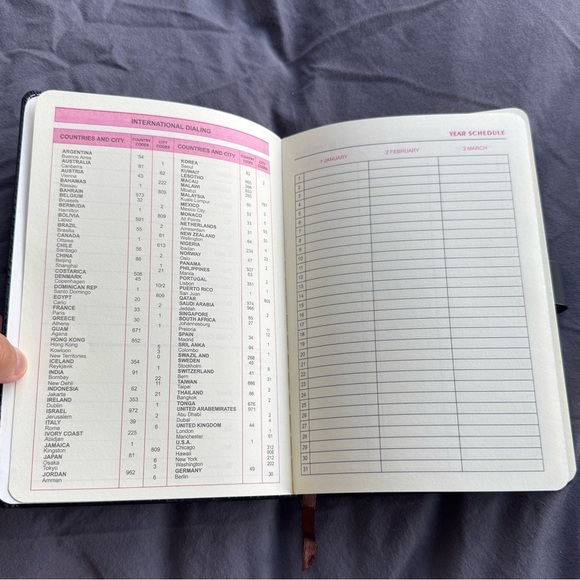 INTERNATIONAL DIALING
COUNTRIES AND CITY COUNTRY CODES CITY CODES COUNTRIES AND CITY COUNTRY CODES CITY CODES
ARGENTINA
Buenos Aires 54 1
AUSTRALIA
Canberra 61 62
AUSTRIA
Vienna 43 222
BAHAMAS
Nassau 1 809
BAHRAIN 973
BELGIUM
Brussels 32 2
BERMUDA
Hamilton 1 809
BOLIVIA
Lapaz 591 2
BRAZIL
Brasilia 55
CANADA
Ottawa 1 613
CHILE
Santiago 56 2
CHINA
Beijing 86
Shanghai 1
COSTARICA 506 21
DENMARK 45
Copenhagen
DOMINICAN REP 1
Santo Domingo 809
EGYPT 20
Cario 2
FRANCE 33
Paris 1
GREECE 30
Athens 1
GUAM 671
Agana
HONG KONG 852
Hong Kong 5
Kowloon 3
New Territories 0
ICELAND 354
Raykjavik 1
INDIA 91
Bombay 22
New Dehli 11
INDONESIA 62
Jakarta 21
IRELAND 353
Dublin 1
ISRAEL 972
Jerusalem 2
ITALY 39
Rome 6
IVORY COAST 225
Abidjan
JAMAICA 1
Kingston 809
JAPAN 81
Osaka 6
Tokyo 3
JORDAN 962
Amman 6
KOREA
Seoul 82 2
KUWAIT
LESOTHO
MACAU
MALAWI
MALAYSIA
Kuala Lumpur
MEXICO
Mexico City
MONACO
All Points
NETHERLANDS
Amsterdam
NEW ZEALAND
Wellington
NIGERIA
Ibadan
NORWAY
Oslo
PANAMA
PHILIPPINES
Manila
PORTUGAL
Lisbon
PUERTO RICO
San Juan
QATAR
SAUDI ARABIA
Jeddah
SINGAPORE
SOUTH AFRICA
Johannesburg
Pretoria
SPAIN
Madrid
SRI LANKA
Colombo
SWAZILAND
SWEDEN
Stockholm
SWITZERLAND
Bern
TAIWAN
Taipei
THAILAND
Bangkok
TONGA
UNITED ARABEMIRATES 971
Abu Dhabi 2
Dubai 4
UNITED KINGDOM 44
London 1
Manchester 61
U.S.A. 1
Chicago 312
Hawaii 808
New York 212
Washington 202
GERMANY 49
Berlin 30
YEAR SCHEDULE
1 JANUARY 2 FEBRUARY 3 MARCH
1
2
3
4
5
6
7
8
9
10
11
12
13
14
15
16
17
18
19
20
21
22
23
24
25
26
27
28
29
30
31